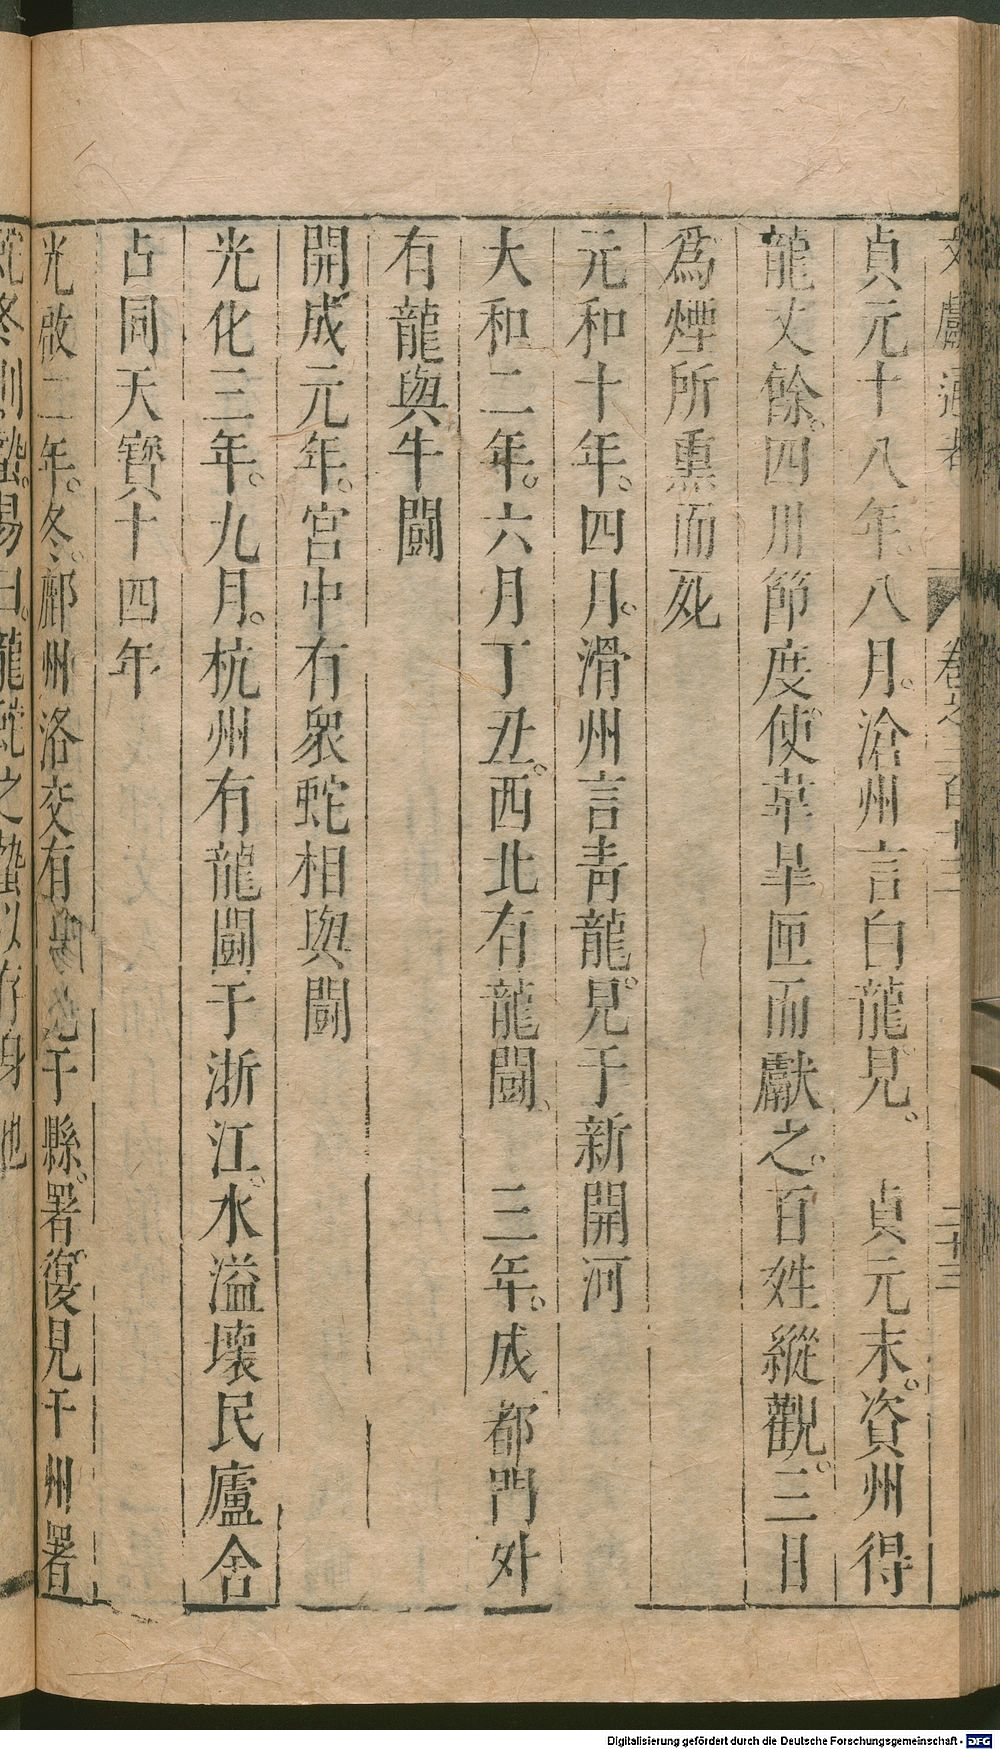 文獻通考 卷之三百十三 二十三
貞元十八年。八月。滄州言白龍見。 貞元末。資州得
龍丈餘。四川節度使韋皐匣而獻之。百姓縱觀。三日
爲煙所熏而死
元和十年。四月。滑州言青龍見于新開河
大和二年。六月丁丑。西北有龍闘。 三年。成都門外
有龍與牛闘
開成元年。宮中有衆蛇相與闘
光化三年。九月。杭州有龍闘于浙江。水溢壞民廬舍
占同天寶十四年
光啟二年。冬。鄜州洛交有 于縣。署。復見于州署
蛇冬則蟄。易曰。龍蛇之蟄以存身也
Digitalisierung gefördert durch die Deutsche Forschungsgemeinschaft - DFG